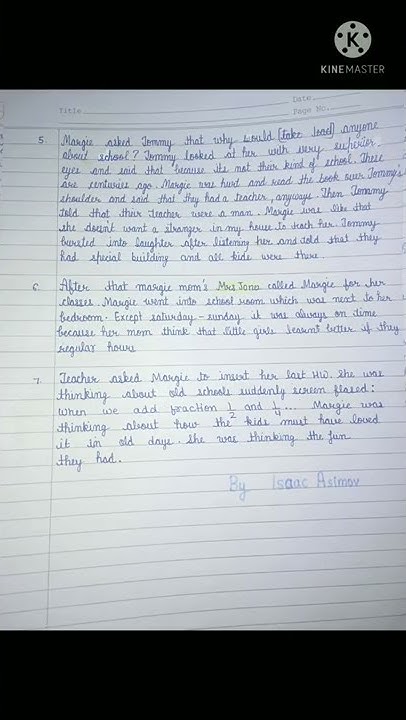 KINEMASTER
Date
Title
Page No.
5. Margie asked Tommy that why would (take load) anyone
about school? Tommy looked at her with very superior
eyes and said that because its not their kind of school. These
are centuries ago. Margie was hurd and read the book over Tommy's
shoulder and said that they had a teacher, anyways. Then Tommy
told that their teacher were a man. Margie was like that
she doesnt want a stranger in my house to teach her. Tommy
bursted into laughter after listening her and told that they
had special building and all kids were there.
6. After that margie mom's Mrs Jona called Margie for her
classes. Margie went into school room which was next to her
bedroom. Except saturday - sunday it was always on time
because her mom think that little girls learnt better if they
regular hours
7. Teacher asked Margie to insert her last HW. She was
thinking about old schools suddenly screen flased:
When we add fraction 1/2 and 1/4 ... Margie was
thinking about how the kids must have loved
it in old days. She was thinking the fun
they had.
By Isaac Asimov